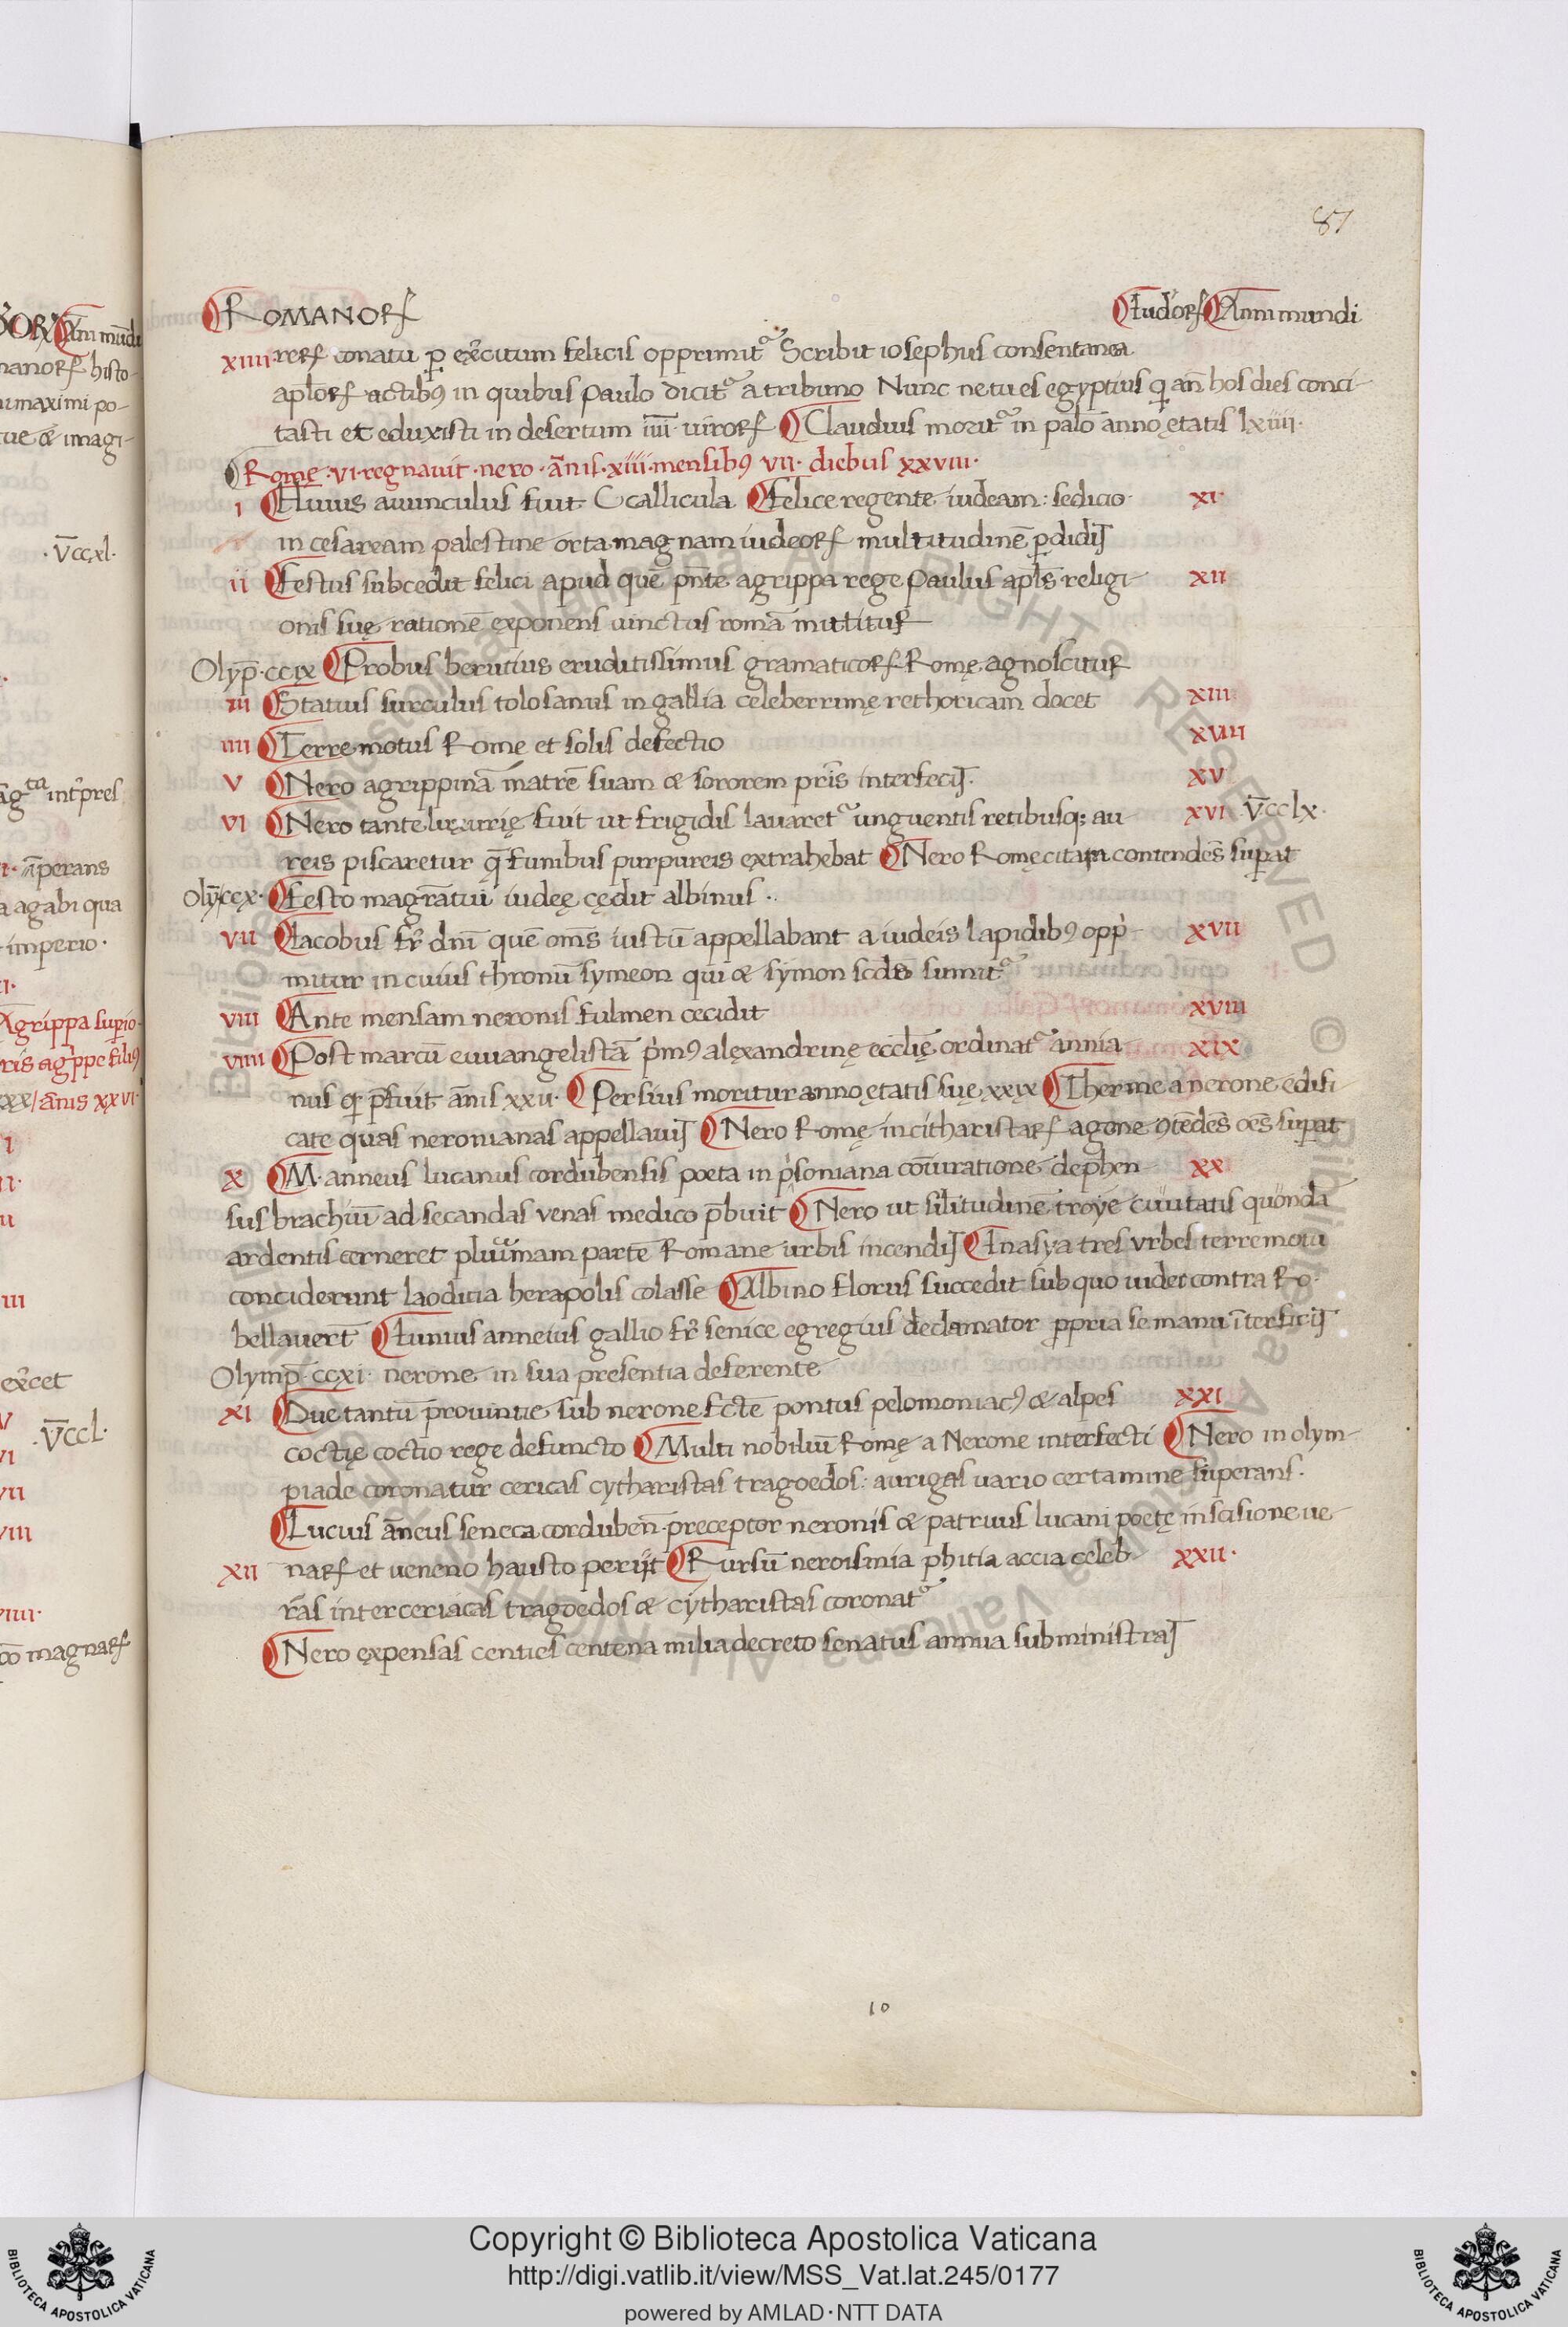 87
ROMANOꝜ Iudoꝝ Anni mundi
xiiii reꝝ conatu ꝑ exercitum felicis opprimit᷑ Scribit iosephus consentanea
aplōꝝ actibꝰ in quibus paulo dicit᷑ a tribuno Nunc ne tu es egyptius q̇ an̄ hos dies conci-
tasti et eduxisti in desertum īīīī viroꝝ Claudius morit᷑ in palō anno ętatis lxiiii.
Romę .vi. regnavit .nero. ānis .xiiii. mensibꝰ vii. diebus xxviii.
i Huius avunculus fuit Ccallicula Felice regente iudeam: sedicio xi.
in cesaream palestine orta magnam iudeoꝝ multitudinē ꝑdidiT
ii Festus subcedit felici apud quē pn̄te agrippa rege Paulus apls̄ religi- xii
onis suę rationē exponens vinctus romā mittituR
Olyp̄. ccix Probus berutius eruditissimus gramaticoꝝ Romę agnoscituR
iii Statius surculus tolosanus in gallia celeberrimę rethoricam docet xiii
iiii Terre motus Romę et solis defectio xiiii
v Nero agrippinā matrē suam & sororem pr̄is interfeciT. xv
vi Nero tante luxurię fuit ut frigidis lavaret᷑ unguentis retibusq; au- xvi .V̄cclx.
reis piscaretur q̄ funibus purpureis extrahebat Nero Romę citara contendēs suꝑat
Olȳ ccx. Festo magrātui iudeę cędit albinus .
vii Iacobus fr̄ dn̄i quē om̄s iustū appellabant a iudeis lapidibꝰ oppͥ- xvii
mitur in cuius thronū symeon qui & symon scds̄ sumit᷑
viii Ante mensam neronis fulmen cecidit xviii
viiii Post marcū euuangelistā pͥmꝰ alexandrinę ecclię̄ ordinat᷑ annia- xix
nus q̇ p̄fuit ānis xxii. Persius moritur anno ętatis suę xxix Therme a nerone edifi-
cate quas neronianas appellaviT Nero Romę in citharistaꝝ agone ꝯtēdēs oēs suꝑat
x M. anneus lucanus cordubensis poeta in pͥsoniana cōiuratione dephen- xx
sus brachiū ad secandas venas medico p̄buit Nero ut silitudinē troye civitatis quōndā
ardentis cerneret plurimam partē Romane urbis incendiT In asya tres urbes terremotu
conciderunt laodicia herapolis colasse Albino florus succedit sub quo iudei contra Ro.
bellavert̄ Iunius anneius gallio fr̄ senice egregius declamator ꝓpria se manu īterficiT
Olymp̄. ccxi. nerone in sua presentia deferente
xi Due tantū provintie sub nerone fctē pontus pelomoniacꝰ & alpes xxi
coctię coctio rege defuncto Multi nobiliū Romę a Nerone interfecti Nero in olym-
piade coronatur cericas cytharistas tragoedos: aurigas vario certamine superans.
Lucius āneus seneca cordubēn. preceptor neronis & patruus lucani poetę inscisione ve-
xii naꝝ et veneno hausto periit Rursū nero isinia phitia accia celeb- xxii.
rās inter ceriacas tragoedos & cytharistas coronat᷑
Nero expensas centies centena milia decreto senatus annua subministraT
10
oꝝ Ani mūdi
manoꝝ histo-
i maximi po-
tue & imagi-
.V̄ccxl.
intͥpres
īperans
a agabi qua
imperio.
Agrippa supio-
ris agͥppe filiꝰ
xxx/ ānis xxvi.
exercet
.V̄ccl.
magnaꝝ
Copyright © Biblioteca Apostolica Vaticana
http://digi.vatlib.it/view/MSS_Vat.lat.245/0177
powered by AMLAD·NTT DATA
BIBLIOTECA APOSTOLICA VATICANA
BIBLIOTECA APOSTOLICA VATICANA